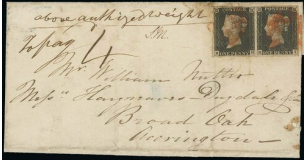 above authized weight
To pay 4
Mr. William Nutter
Messrs Hargreaves Dugdale & Co
Broad Oak
Accrington